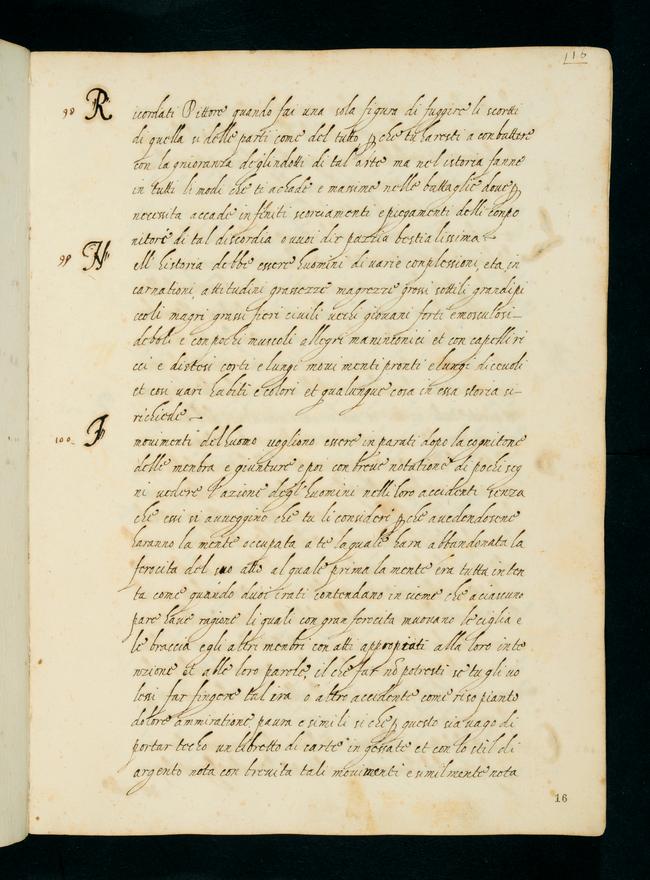 116
98 R icordati Pittore quando fai una sola figura di fuggire li scortti
di quella si delle parti come del tutto p che tu haresti a conbattere
con la gnioranza deglindotti di tal arte ma nel istoria fanne
in tutti li modi che ti acade e massime nelle battaglie dove p
necessita accade infiniti scorciamenti e piegamenti delli conpo
nitori di tal discordia o vuoi dir pazzia bestialissima
99 N ell historia debbe essere huomini di varie conplessioni, eta, in
carnationi, attitudini grassezze magrezze grossi sottili grandi pi
ccoli magri grassi fieri civili vechi giovani forti e mosculosi
deboli e con pochi muscoli allegri maninconici et con capelli ri
cci e distesi corti e lungi movimenti pronti e lungi di cuoli
et cosi vari habiti e colori et qualunque cosa in essa storia si
richiede
100 I movimenti del huomo vogliono essere inparati dopo la cognitone
delle menbra e giunture e poi con breve notatione di pochi seg
ni vedere l'azione degl'huomini nelli loro accidenti senza
che essi si avvegino che tu li consideri p che avedendosene
haranno la mente occupata a te la quale hara abbandonata la
ferocita del suo atto al quale prima la mente era tutta inten
ta come quando duoi irati contendano insieme che a ciascuno
pare have ragione li quali con gran ferocita muovano le ciglia e
le braccia e gli altri menbri con atti appropiati alla loro inte
nzione et alle loro parole, il che far nõ potresti se tu gli vo
lessi far fingere tal ira o altro accidente come riso pianto
dolore ammiratione, paura e simili si che p questo sia vago di
portar techo un libretto di carte ingessate et con lo stil di
argento nota con brevita tali movimenti e similmente nota
16